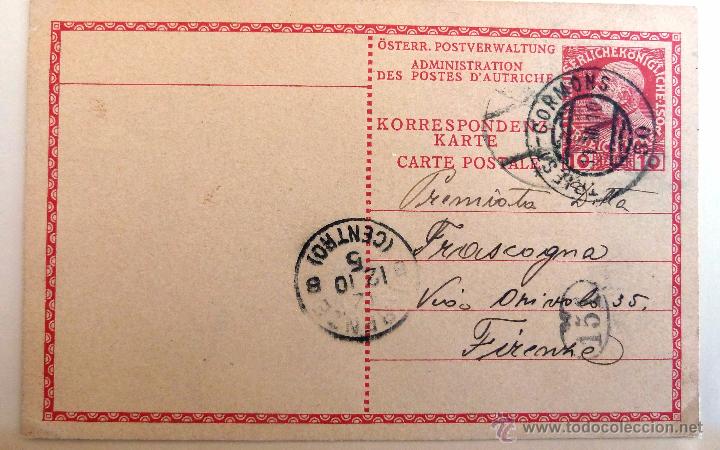 ÖSTERR. POSTVERWALTUNG
ADMINISTRATION
DES POSTES D'AUTRICHE
KORRESPONDENZ-
KARTE
CARTE POSTALE
10 10
CORMONS
Premiata Ditta
Frascogna
Via Oriuolo 35.
Firenze
(CENTRO)
5
12.10
8
15
todocoleccion.net